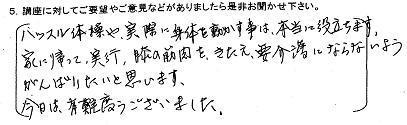 5. 講座に対してご要望やご意見などがありましたら是非お聞かせ下さい。
ハッスル体操や、実際に身体を動かす事は、本当に役立ちます。
家に帰って、実行、膝の筋肉を、きたえ、要介護にならないよう
がんばりたいと思います。
今日は、有難度うございました。